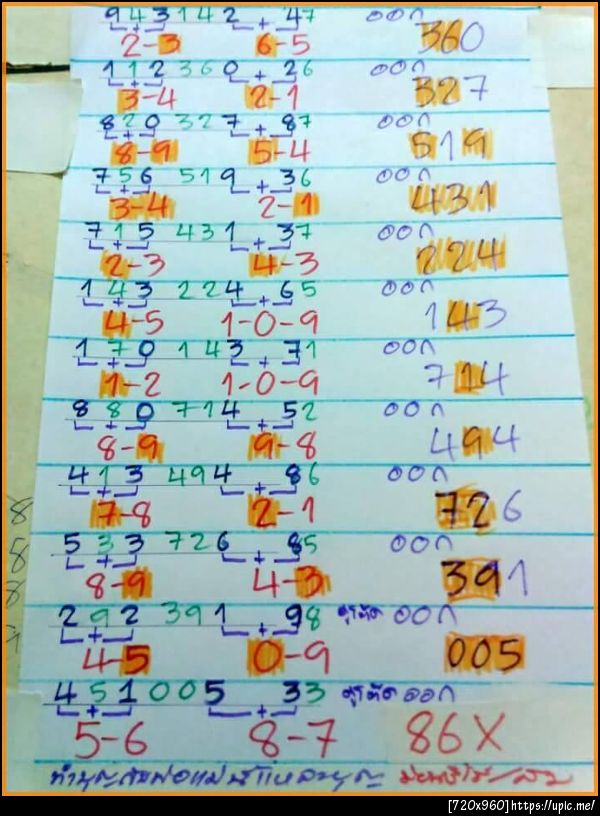 943142 + 47 ออก
2-3 6-5 360
112 360 + 26 ออก
3-4 2-1 327
820 327 + 87 ออก
8-9 5-4 519
756 519 + 36 ออก
3-4 2-1 431
715 431 + 37 ออก
2-3 4-3 224
143 224 + 65 ออก
4-5 1-0-9 143
170 143 + 71 ออก
1-2 1-0-9 714
880 714 + 52 ออก
8-9 9-8 494
413 494 + 86 ออก
7-8 2-1 726
533 726 + 85 ออก
8-9 4-3 391
292 391 + 98 ออก
4-5 0-9 005
451005 + 33 ออก
5-6 8-7 86X
[720x960]https://upic.me/